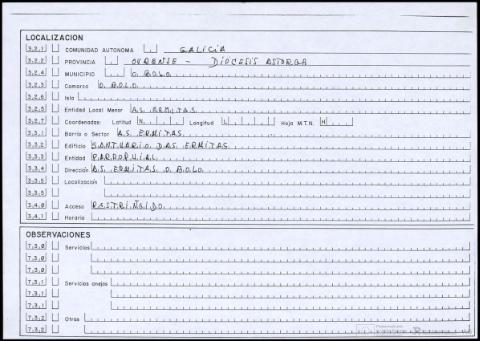 LOCALIZACION
3.2.1 COMUNIDAD AUTONOMA GALICIA
3.2.2 PROVINCIA OURENSE - DIOCESIS ASTORGA
3.2.4 MUNICIPIO O BOLO
3.2.3 Comarca O BOLO
3.2.6 Isla
3.2.5 Entidad Local Menor AS ERMITAS
3.2.7 Coordenadas: Latitud N Longitud L Hoja M.T.N. H
3.3.1 Barrio o Sector AS ERMITAS
3.3.2 Edificio SANTUARIO DAS ERMITAS
3.3.3 Entidad PARROQUIAL
3.3.4 Dirección AS ERMITAS O BOLO
3.3.5 Localización
3.3.5
3.4.0 Acceso RESTRIÑIDO
3.4.1 Horario
OBSERVACIONES
7.3.0 Servicios
7.3.0
7.3.0
7.3.1 Servicios anejos
7.3.1
7.3.1
7.3.2 Otros
7.3.2